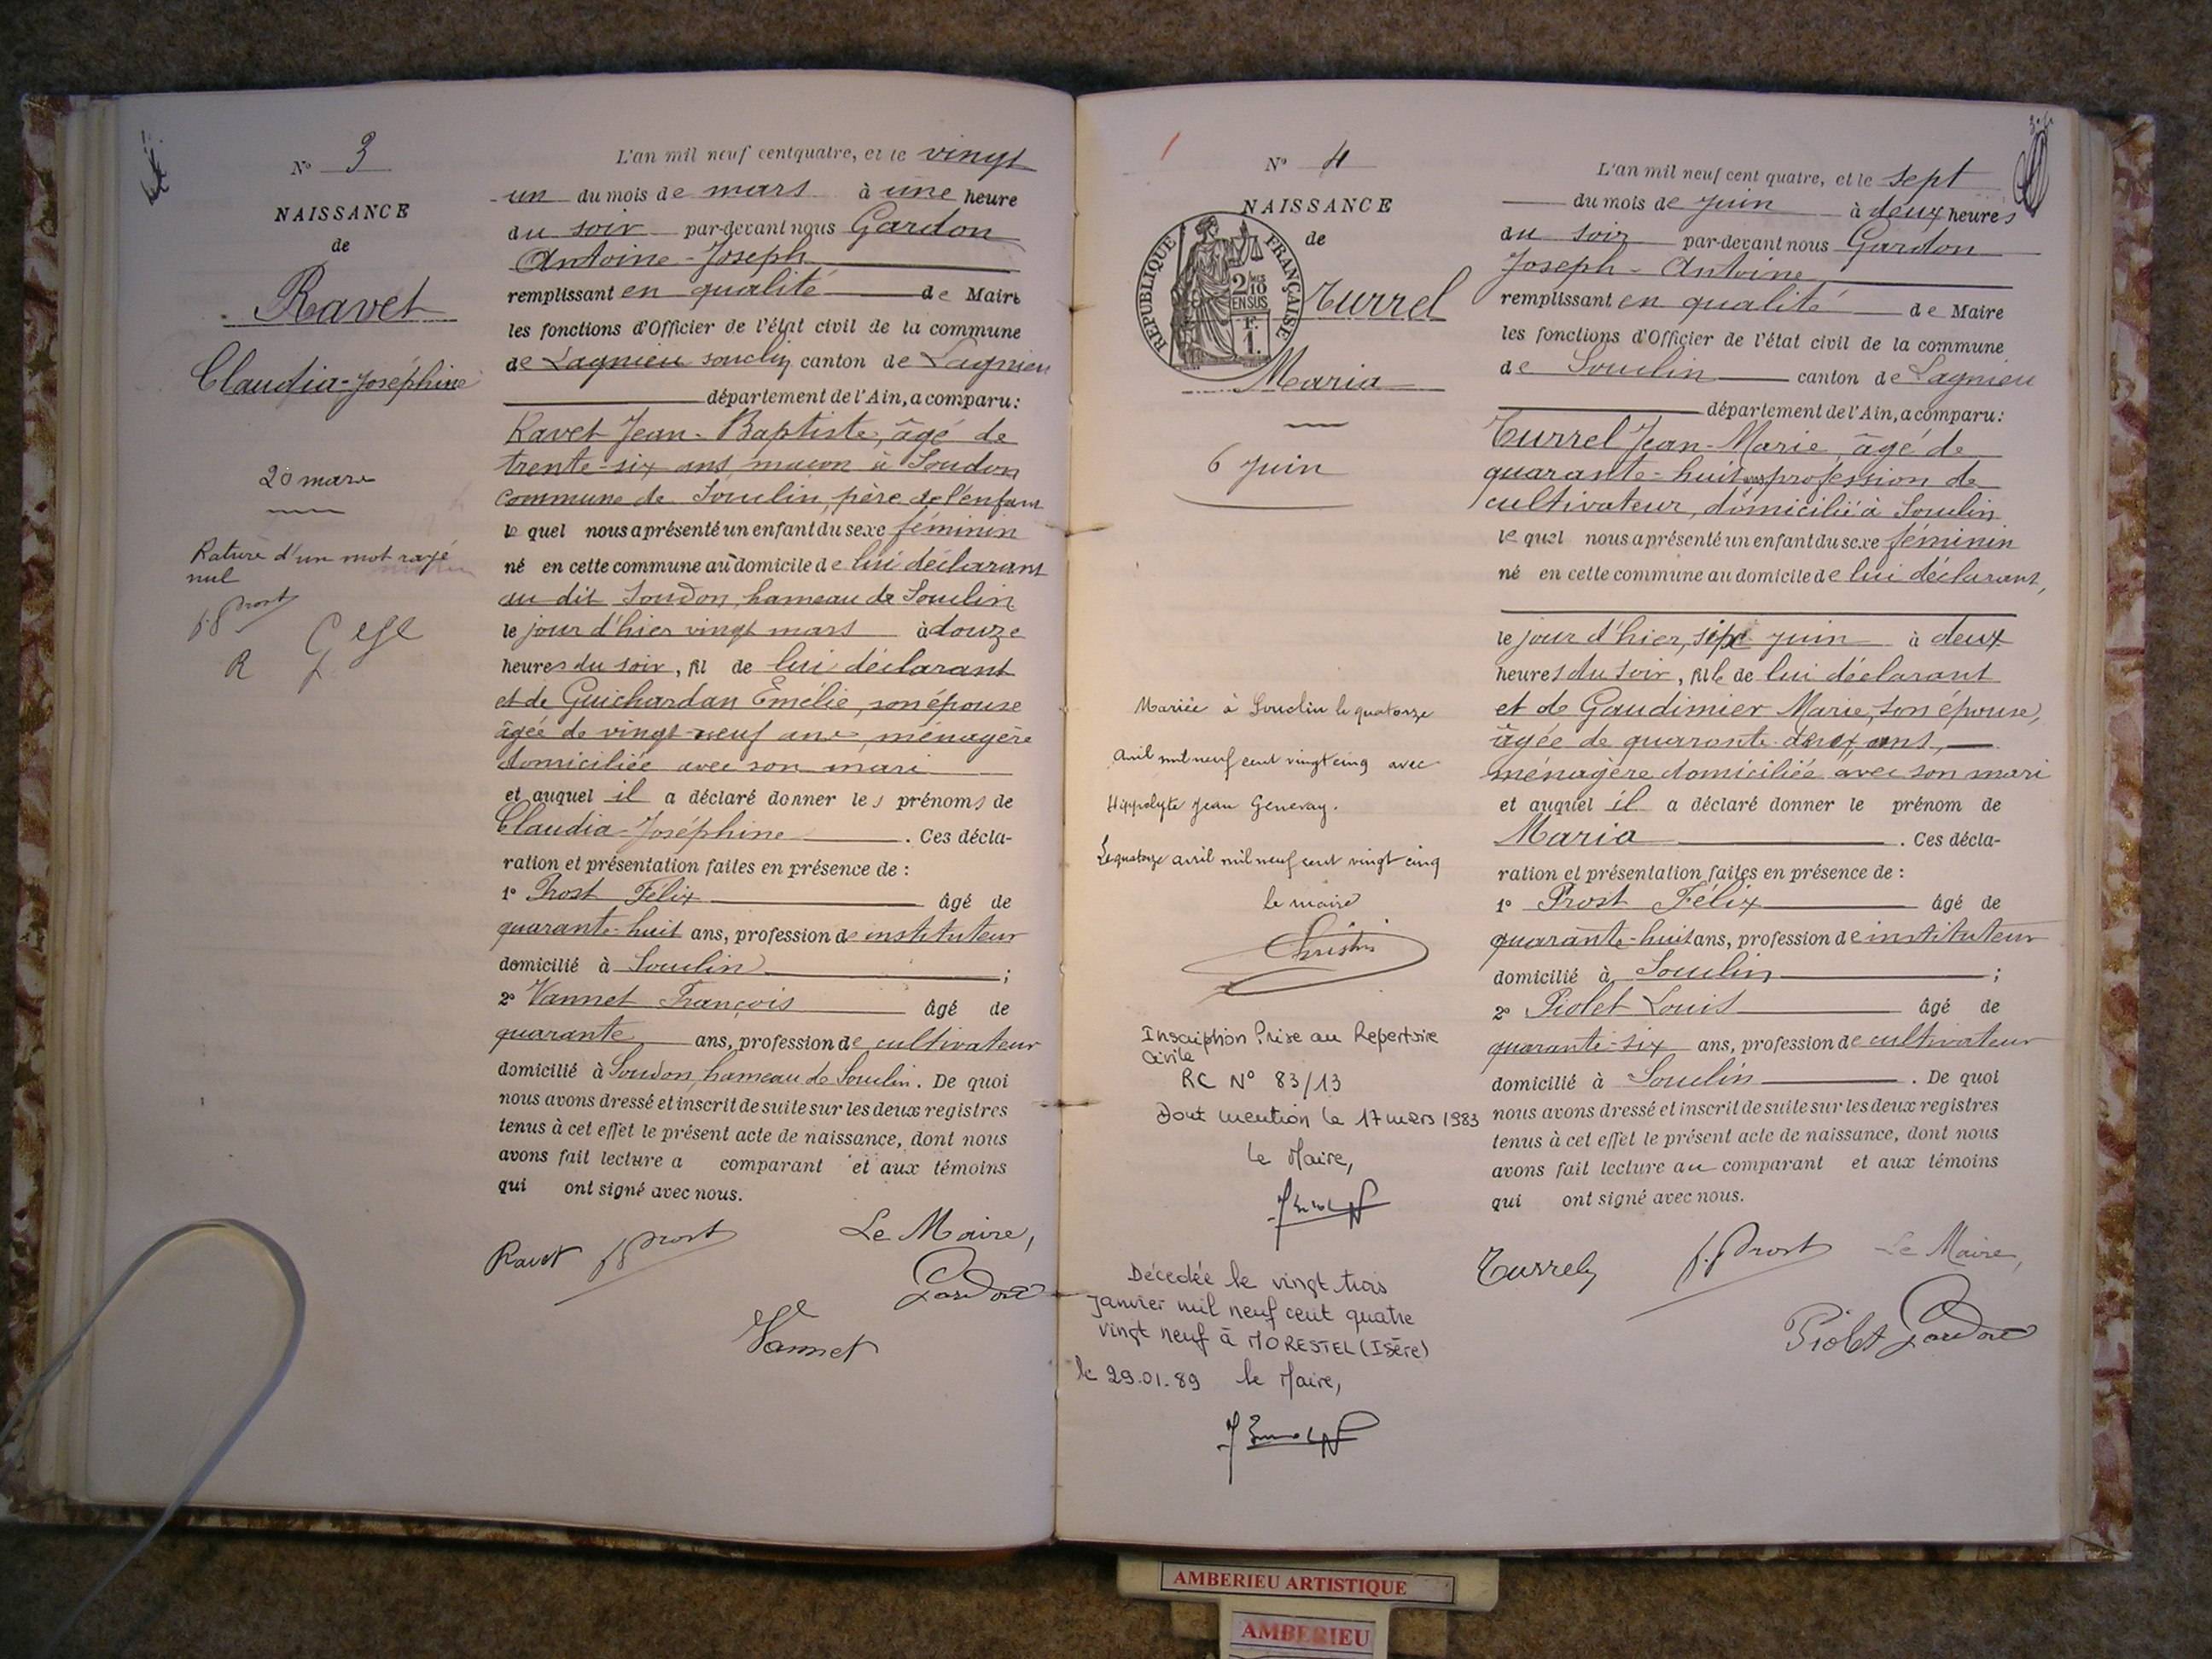 N° 3
NAISSANCE
de
Ravet
Claudia-Joséphine
20 mars
Rature d'un mot rayé
nul
f. Prost
R
L'an mil neuf cent quatre, et le vingt
un du mois de mars à une heure
du soir par-devant nous Gardon
Antoine-Joseph
remplissant en qualité de Maire
les fonctions d'Officier de l'état civil de la commune
de Lagnieu souclin canton de Lagnieu
département de l'Ain, a comparu:
Ravet Jean-Baptiste, âgé de
trente-six ans, maçon à Soudon
commune de Souclin, père de l'enfant
le quel nous a présenté un enfant du sexe féminin
né en cette commune au domicile de lui déclarant
au dit Soudon, hameau de Souclin
le jour d'hier vingt mars à douze
heures du soir, fil de lui déclarant
et de Guichardan Emélie, son épouse
âgée de vingt-neuf ans, ménagère
domiciliée avec son mari
et auquel il a déclaré donner les prénoms de
Claudia-Joséphine. Ces décla-
ration et présentation faites en présence de :
1° Prost Félix âgé de
quarante-huit ans, profession de instituteur
domicilié à Souclin ;
2° Vannet François âgé de
quarante ans, profession de cultivateur
domicilié à Soudon, hameau de Souclin. De quoi
nous avons dressé et inscrit de suite sur les deux registres
tenus à cet effet le présent acte de naissance, dont nous
avons fait lecture a comparant et aux témoins
qui ont signé avec nous.
Ravet f. Prost Le Maire,
Gardon
Vannet
N° 4
NAISSANCE
de
REPUBLIQUE FRANÇAISE
2/10
EN SUS
F.
1.
Turrel
Maria
6 Juin
Mariée à Souclin le quatorze
avril mil neuf cent vingt cinq avec
Hippolyte Jean Genevay.
Le quatorze avril mil neuf cent vingt cinq
le maire
Christin
Inscription Prise au Repertoire
Civile
RC N° 83/13
Dont mention le 17 mars 1983
Le Maire,
Décedée le vingt trois
Janvier mil neuf cent quatre
vingt neuf à MORESTEL (Isère)
le 29.01.89 le Maire,
L'an mil neuf cent quatre, et le sept
du mois de Juin à deux heures
du soir par-devant nous Gardon
Joseph-Antoine
remplissant en qualité de Maire
les fonctions d'Officier de l'état civil de la commune
de Souclin canton de Lagnieu
département de l'Ain, a comparu:
Turrel Jean-Marie, âgé de
quarante-huit ans profession de
cultivateur, domicilié à Souclin
le quel nous a présenté un enfant du sexe féminin
né en cette commune au domicile de lui déclarant,
le jour d'hier, six juin à deux
heures du soir, fille de lui déclarant
et de Gaudimier Marie, son épouse,
âgée de quarante-deux ans,
ménagère domiciliée avec son mari
et auquel il a déclaré donner le prénom de
Maria. Ces décla-
ration et présentation faites en présence de :
1° Prost Félix âgé de
quarante-huit ans, profession de instituteur
domicilié à Souclin ;
2° Piolet Louis âgé de
quarante-six ans, profession de cultivateur
domicilié à Souclin. De quoi
nous avons dressé et inscrit de suite sur les deux registres
tenus à cet effet le présent acte de naissance, dont nous
avons fait lecture au comparant et aux témoins
qui ont signé avec nous.
Turrel f. Prost Le Maire,
Piolet Gardon
AMBERIEU ARTISTIQUE
AMBERIEU